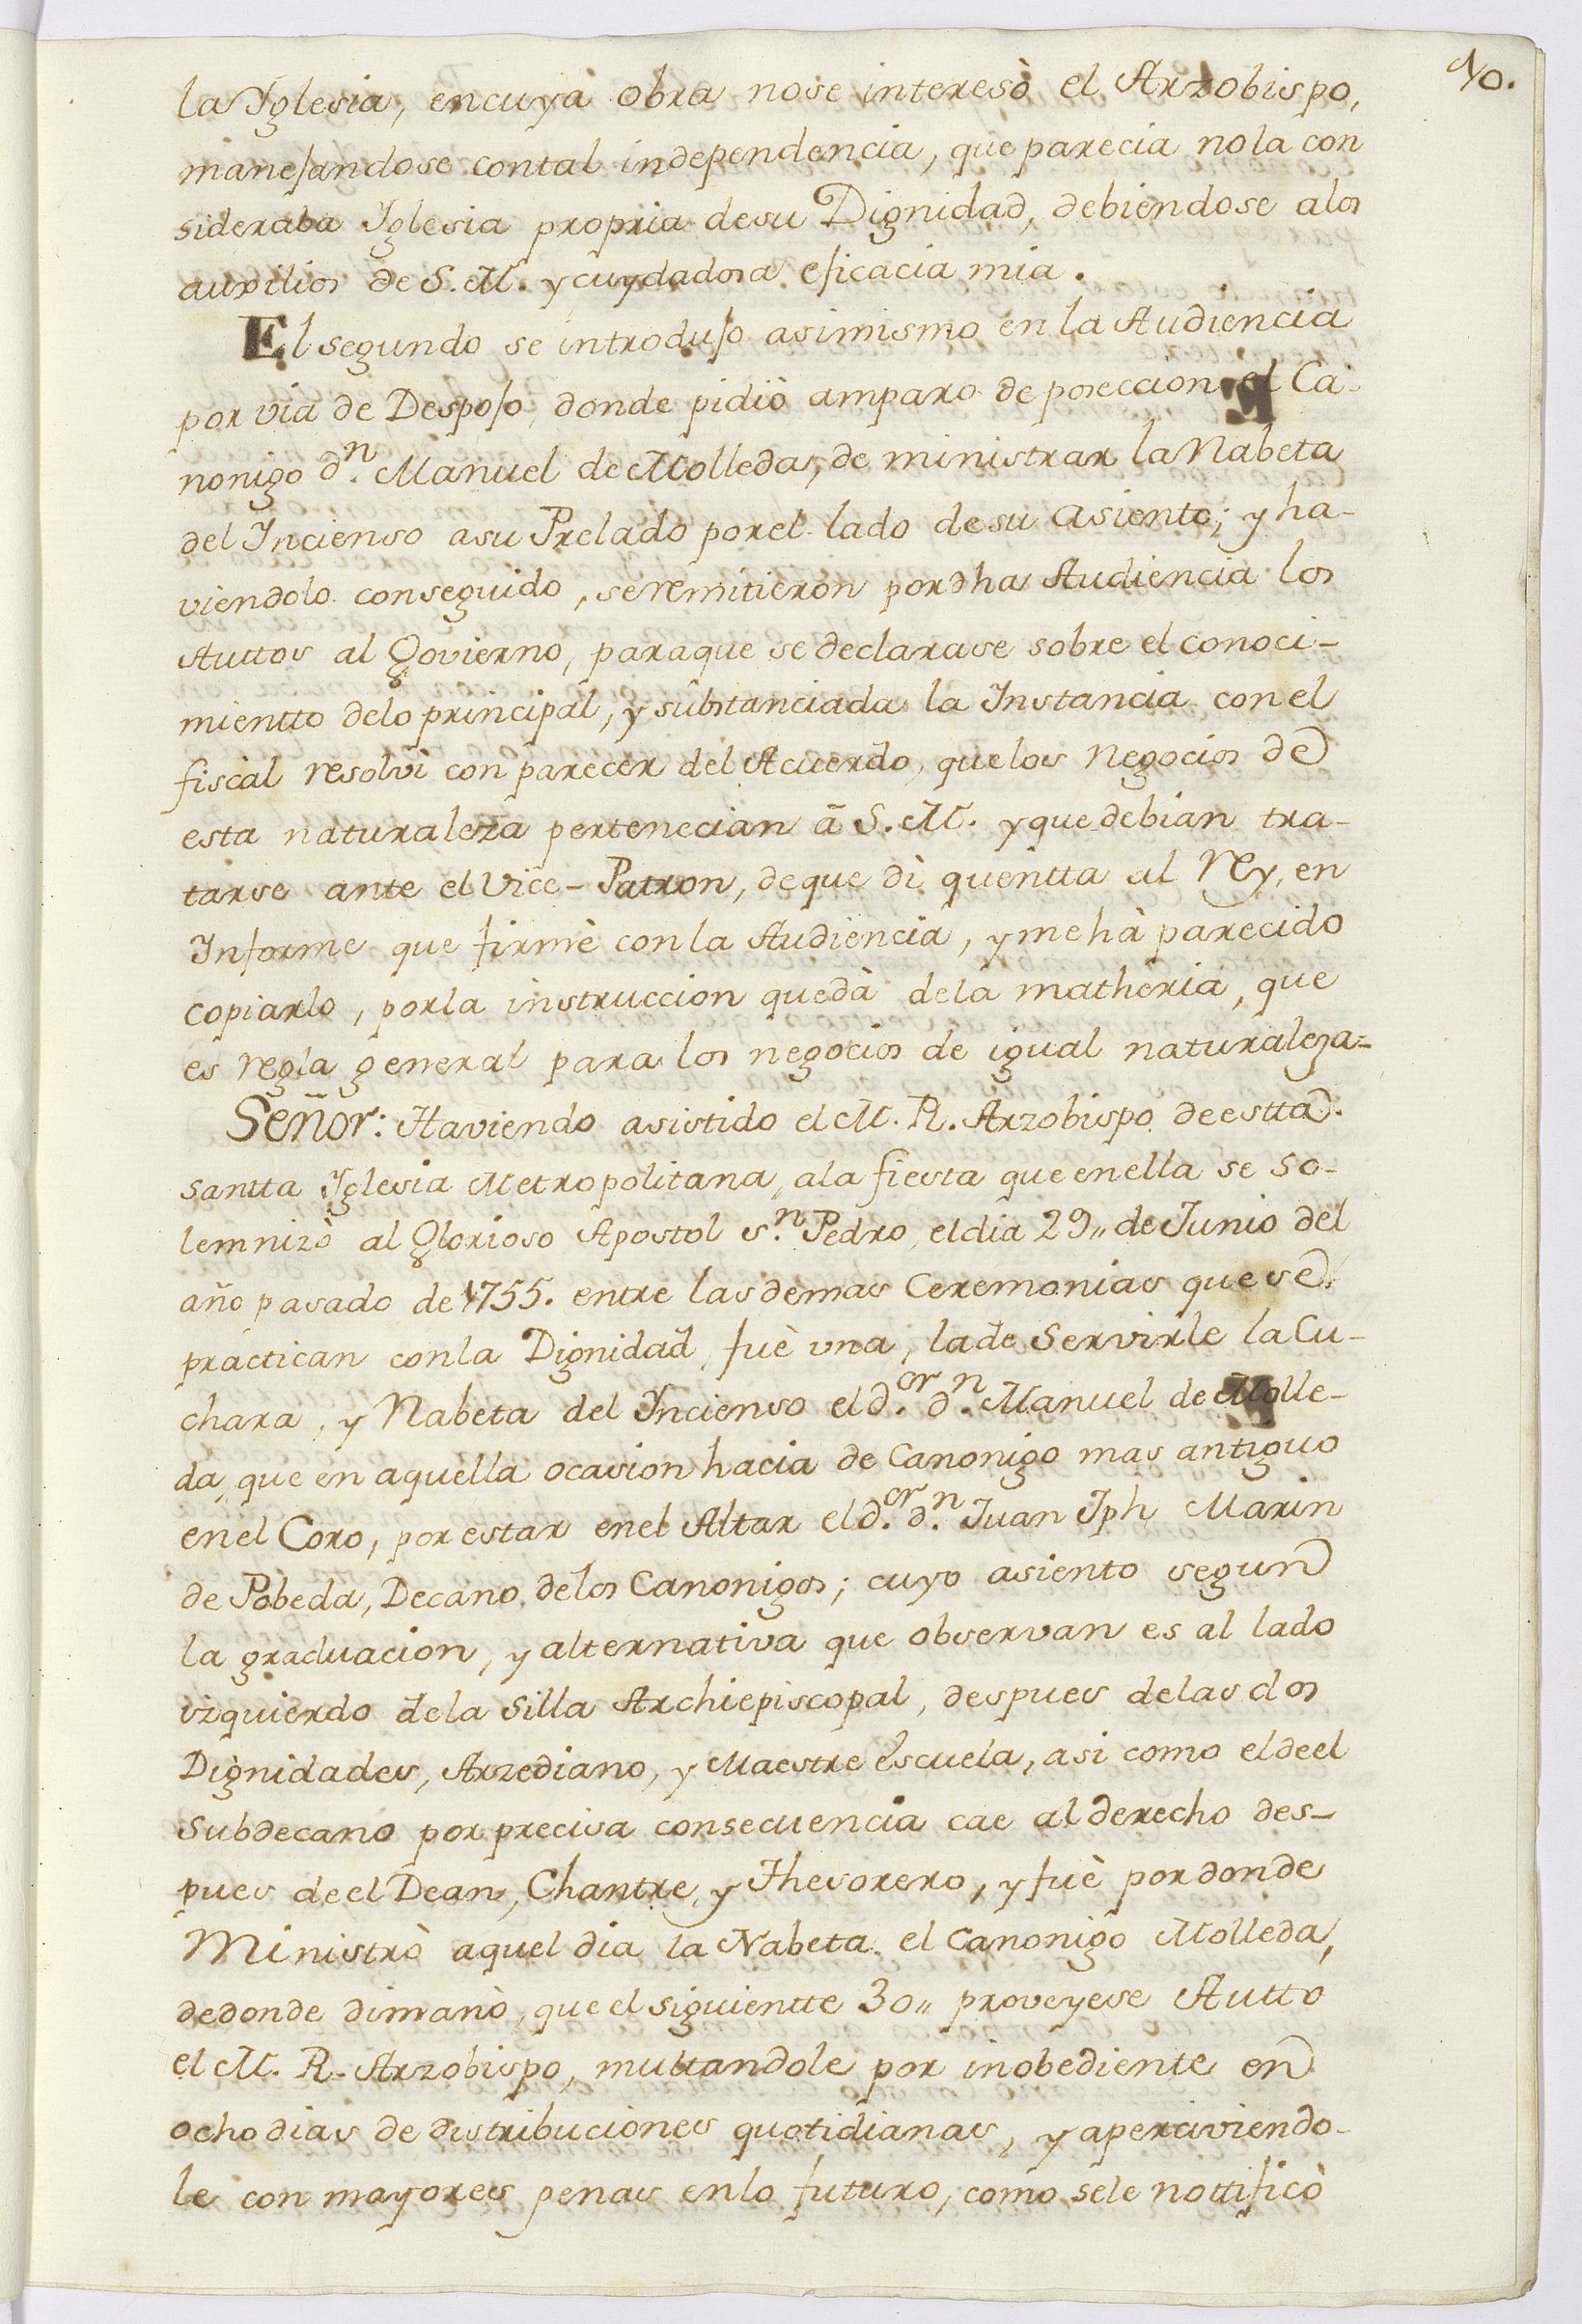 10.
la Yglesia, encuya obra nose interesò el Arzobispo,
manejandose contal independencia, que parecia nola con
sideraba Yglesia propria desu Dignidad, debiendose alos
auxilios de S. M. y cuydadosa eficacia mia.
El segundo se introdujo asimismo en la Audiencia
por via de Despojo, donde pidiò amparo de poseccion el Ca-
nonigo dn. Manuel de Molleda, de ministrar la Nabeta
del Yncienso asu Prelado porel lado desu asiento; y ha-
viendolo conseguido, seremitieron pordha Audiencia los
Auttos al Govierno, paraque se declarase sobre el conoci-
mientto delo principal, y substanciada la Ynstancia con el
fiscal resolvi con parecer del Acuerdo, quelos Negocios de
esta naturaleza pertenecian à S. M. y que debian tra-
tarse ante el Vice-Patron, deque di quentta al Rey, en
Ynforme que firmè conla Audiencia, y mehà parecido
copiarlo, porla instruccion quedà dela matheria, que
es regla general para los negocios de igual naturaleza=
Señor: Haviendo asistido el M. R. Arzobispo deestta
santta Yglesia Metropolitana, ala fiesta que enella se so-
lemnizò al Glorioso Apostol sn. Pedro, eldia 29,, de Junio del
año pasado de 1755. entre lasdemas Ceremonias que se
practican conla Dignidad, fuè una, lade servirle la Cu-
chara, y Nabeta del Yncienso el dor. dn. Manuel de Molle-
da, que en aquella ocasion hacia de Canonigo mas antiguo
enel Coro, por estar enel Altar el dor. dn. Juan Jph Marin
de Pobeda, Decano delos Canonigos; cuyo asiento segun
la graduacion, y alternativa que observan es al lado
izquierdo dela Silla Archiepiscopal, despues delas dos
Dignidades, Arzediano, y Maestre Escuela, asi como eldeel
subdecano por precisa consecuencia cae al derecho des-
pues deel Dean, Chantre, y Thesorero, y fuè por donde
Ministrò aquel dia la Nabeta el Canonigo Molleda,
dedonde dimanò, que el siguientte 30,, proveyese Autto
el M. R. Arzobispo, multandole por inobediente en
ocho dias de distribuciones quotidianas, y aperciviendo-
le con mayores penas enlo futuro, como sele nottificò